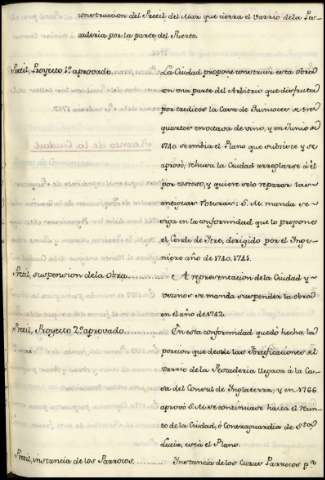 construccion del Pretil del Mar que cierra el Varrio de la Pes-
caderia por la parte del Puerto.
Pretil, Proyecto 1º aprovado.
La Ciudad propone construir esta obra
con una parte del Arbitrio que disfruta
por
quartos en votasa de vino, y en Junio de
1740 se embia el Plano que subsiste y se
aprovó, rehusa la Ciudad arreglarse á él
por costoso, y quiere solo reparar la an-
S. M. manda se
erija en la conformidad que lo propone
el Conde de Itre, dirigido por el Inge-
niero año de 1740. 1741.
Pretil, suspension de la Obra.
A representacion de la Ciudad y
vecinos se manda suspender la obra
en el año de 1742.
Pretil, Proyecto 2º aprovado
En esta conformidad quedó hecha la
porcion que desde las Fortificaciones del
varrio de la Pescaderia llegava á la Ca-
sa del Consul de Inglaterra, y en 1766
aprovó S. M. se continuase hasta el Recin-
to de la Ciudad, ó Contraguardia de Sta
Lucia, está el Plano.
Pretil, instancia de los Parrocos.
Instancia de los Curas Parrocos pª